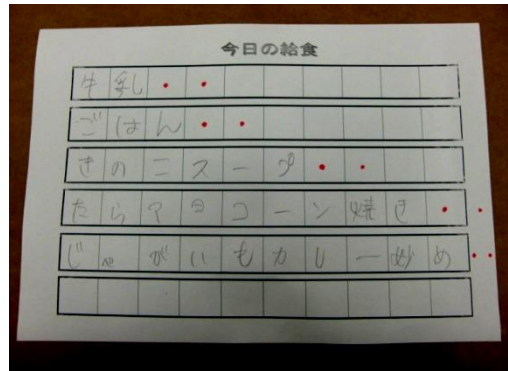 今日の給食
牛乳
ごはん
きのこスープ
たらマヨコーン焼き
じゃがいもカレー炒め